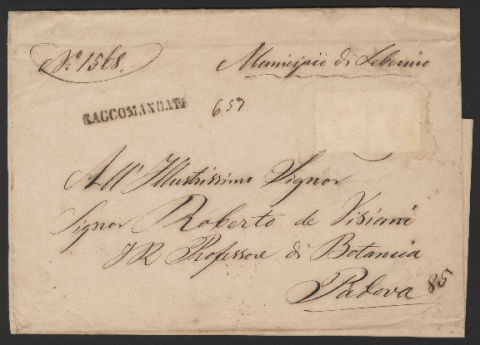 N.° 1568.
Municipio di Sebenico
RACCOMANDATA
657
All' Illustrissimo Signor
Signor Roberto de Visiani
I R Professore di Botanica
Padova
857